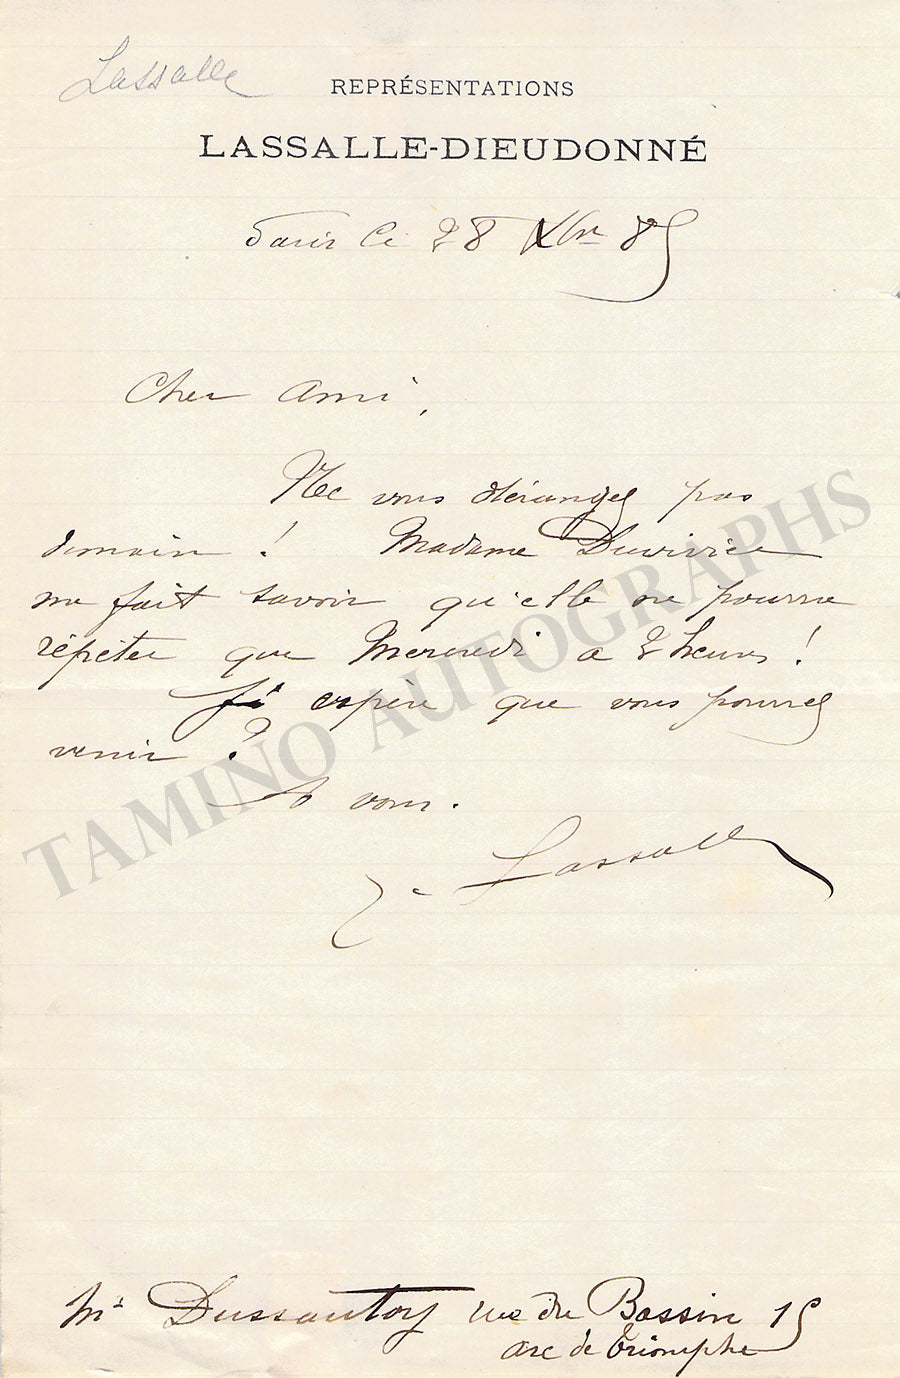 Lassalle
REPRÉSENTATIONS
LASSALLE-DIEUDONNÉ
Paris le 28 Xbre 85
Cher Ami,
Ne vous dérangez pas
demain ! Madame Duvivier
me fait savoir qu'elle ne pourra
répéter que Mercredi à 2 heures !
J'espère que vous pourrez
venir ?
A vous.
J. Lassalle
Mr Dussautoy rue du Bassin 15
arc de Triomphe
TAMINO AUTOGRAPHS